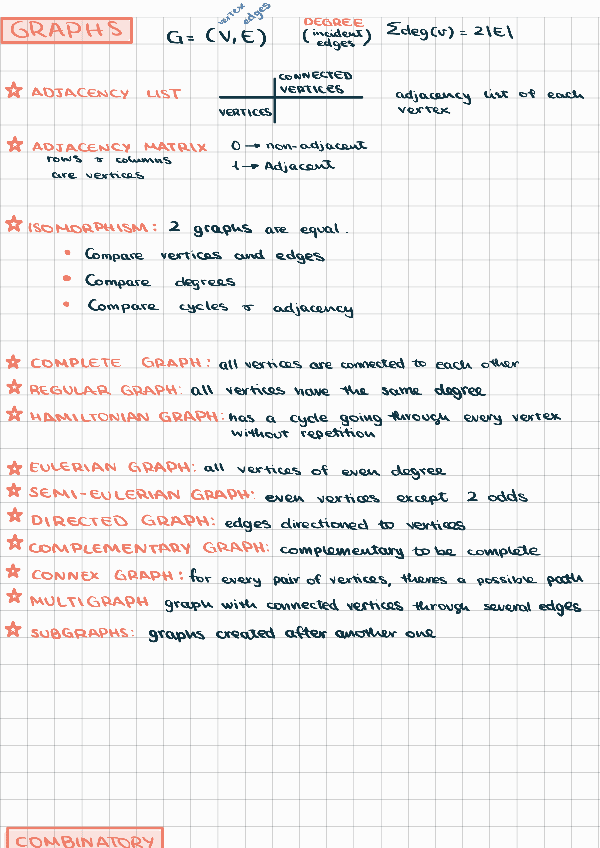 GRAPHS
vertex edges
G = (V, E)
DEGREE
(incident edges)
Σdeg(v) = 2|E|
☆ ADJACENCY LIST
CONNECTED VERTICES
VERTICES
adjacency list of each
vertex
☆ ADJACENCY MATRIX
rows & columns
are vertices
0 → non-adjacent
1 → Adjacent
☆ ISOMORPHISM: 2 graphs are equal.
• Compare vertices and edges
• Compare degrees
• Compare cycles & adjacency
☆ COMPLETE GRAPH: all vertices are connected to each other
☆ REGULAR GRAPH: all vertices have the same degree
☆ HAMILTONIAN GRAPH: has a cycle going through every vertex
without repetition
☆ EULERIAN GRAPH: all vertices of even degree
☆ SEMI-EULERIAN GRAPH: even vertices except 2 odds
☆ DIRECTED GRAPH: edges directioned to vertices
☆ COMPLEMENTARY GRAPH: complementary to be complete
☆ CONNEX GRAPH: for every pair of vertices, theres a possible path
☆ MULTIGRAPH graph with connected vertices through several edges
☆ SUBGRAPHS: graphs created after another one
COMBINATORY